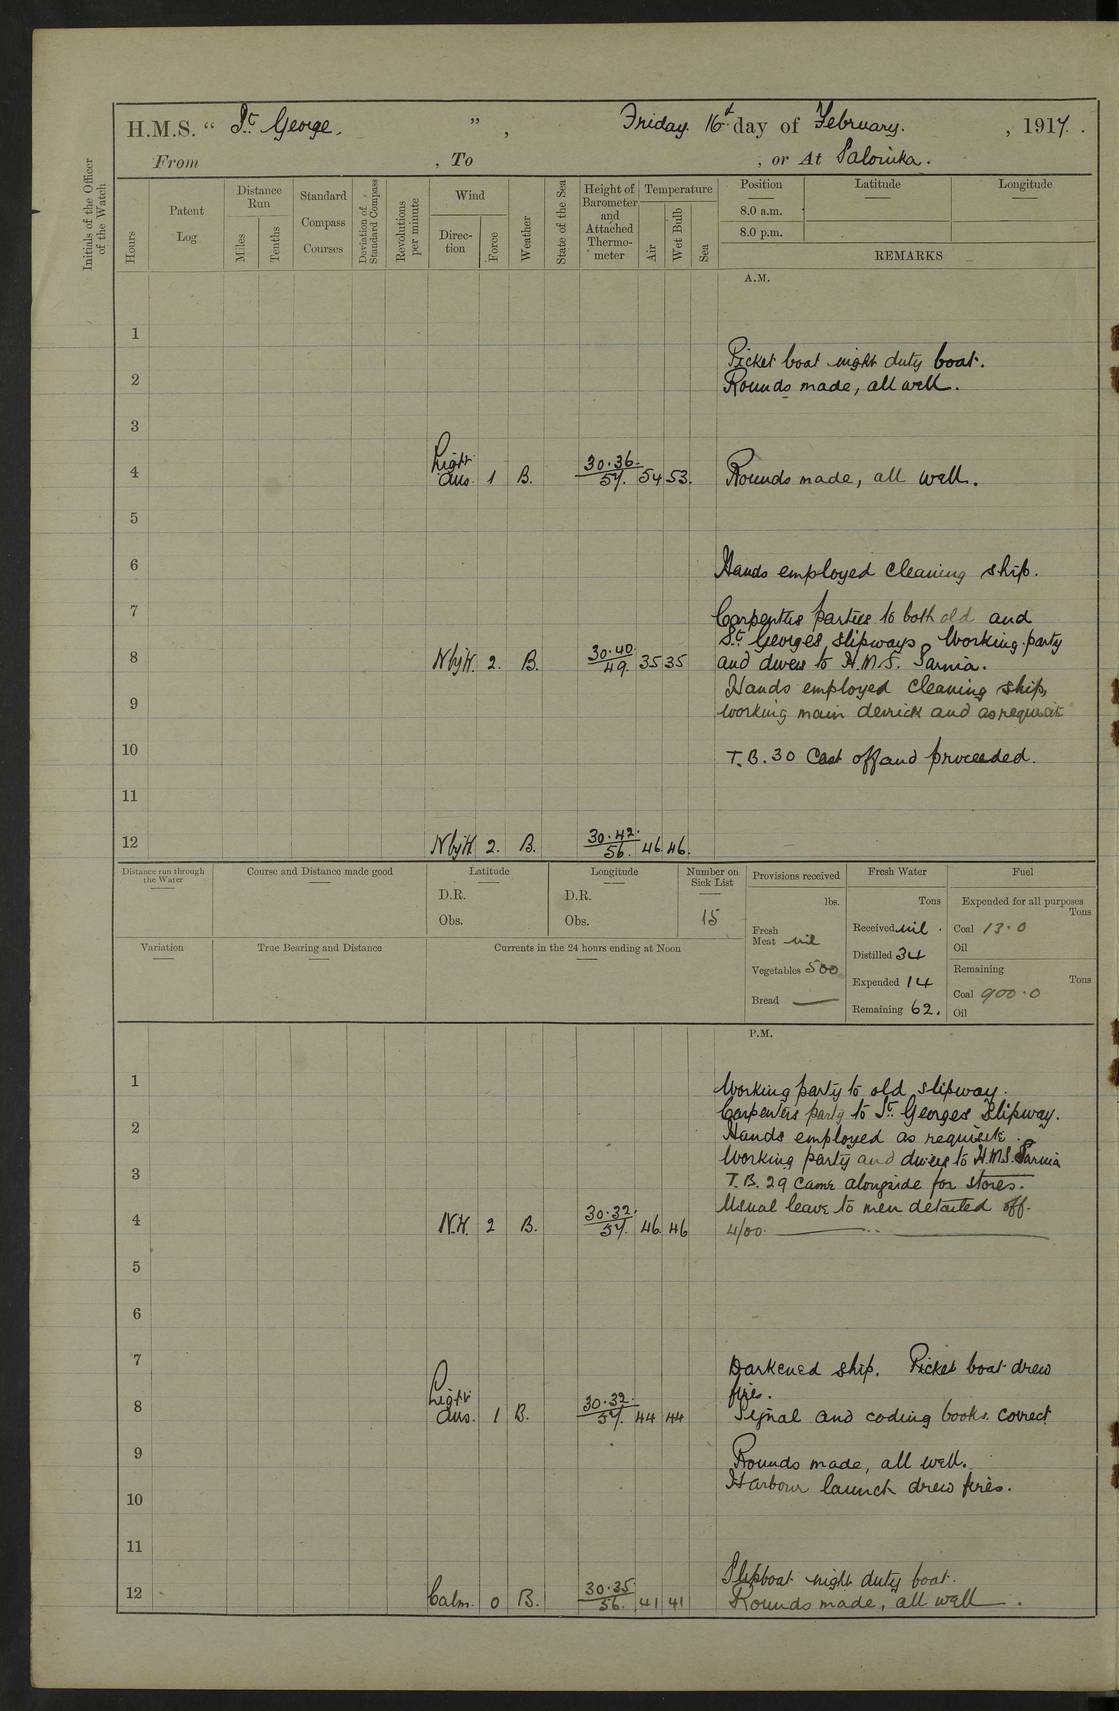 H.M.S. “ St George. ” , Friday 16th day of February. , 1917.
From , To , or At Salonika.
Initials of the Officer of the Watch
Hours
Patent Log
Distance Run
Miles
Tenths
Standard Compass Courses
Deviation of Standard Compass
Revolutions per minute
Wind
Direction
Force
Weather
State of the Sea
Height of Barometer and Attached Thermometer
Temperature
Air
Wet Bulb
Sea
Position
8.0 a.m.
8.0 p.m.
Latitude
Longitude
REMARKS
A.M.
1
Picket boat night duty boat.
2 Rounds made, all well.
3
4 Light airs. 1 B. 30.36. 57. 54 53. Rounds made, all well.
5
6 Hands employed cleaning ship.
7 Carpenters parties to both old and
St Georges slipways. Working party
8 N by W. 2. B. 30.40 49. 35 35 and divers to H.M.S. Sarnia.
Hands employed cleaning ship,
9 working main derrick and as requisite
10 T.B. 30 Cast off and proceeded.
11
12 N by W 2. B. 30.42. 56. 46. 46.
Distance run through the Water
Course and Distance made good
Latitude
D.R.
Obs.
Longitude
D.R.
Obs.
Number on Sick List
15
Provisions received
lbs.
Fresh Meat nil
Vegetables 500
Bread —
Fresh Water
Tons
Received nil.
Distilled 34
Expended 14
Remaining 62.
Fuel
Expended for all purposes
Tons
Coal 13.0
Oil
Remaining
Tons
Coal 900.0
Oil
Variation
True Bearing and Distance
Currents in the 24 hours ending at Noon
P.M.
1 Working party to old slipway.
Carpenters party to St. Georges Slipway.
2 Hands employed as requisite.
Working party and divers to H.M.S. Sarnia
3 T.B. 29 came alongside for stores.
Usual leave to men detailed off.
4 N.W. 2 B. 30.32. 57. 46. 46 4/00.
5
6
7 Darkened ship. Picket boat drew
fires.
8 Light airs. 1 B. 30.32. 57. 44 44 Signal and coding books. correct
9 Rounds made, all well.
Harbour launch drew fires.
10
11
Slipboat night duty boat.
12 Calm. 0 B. 30.35 56. 41 41 Rounds made, all well.